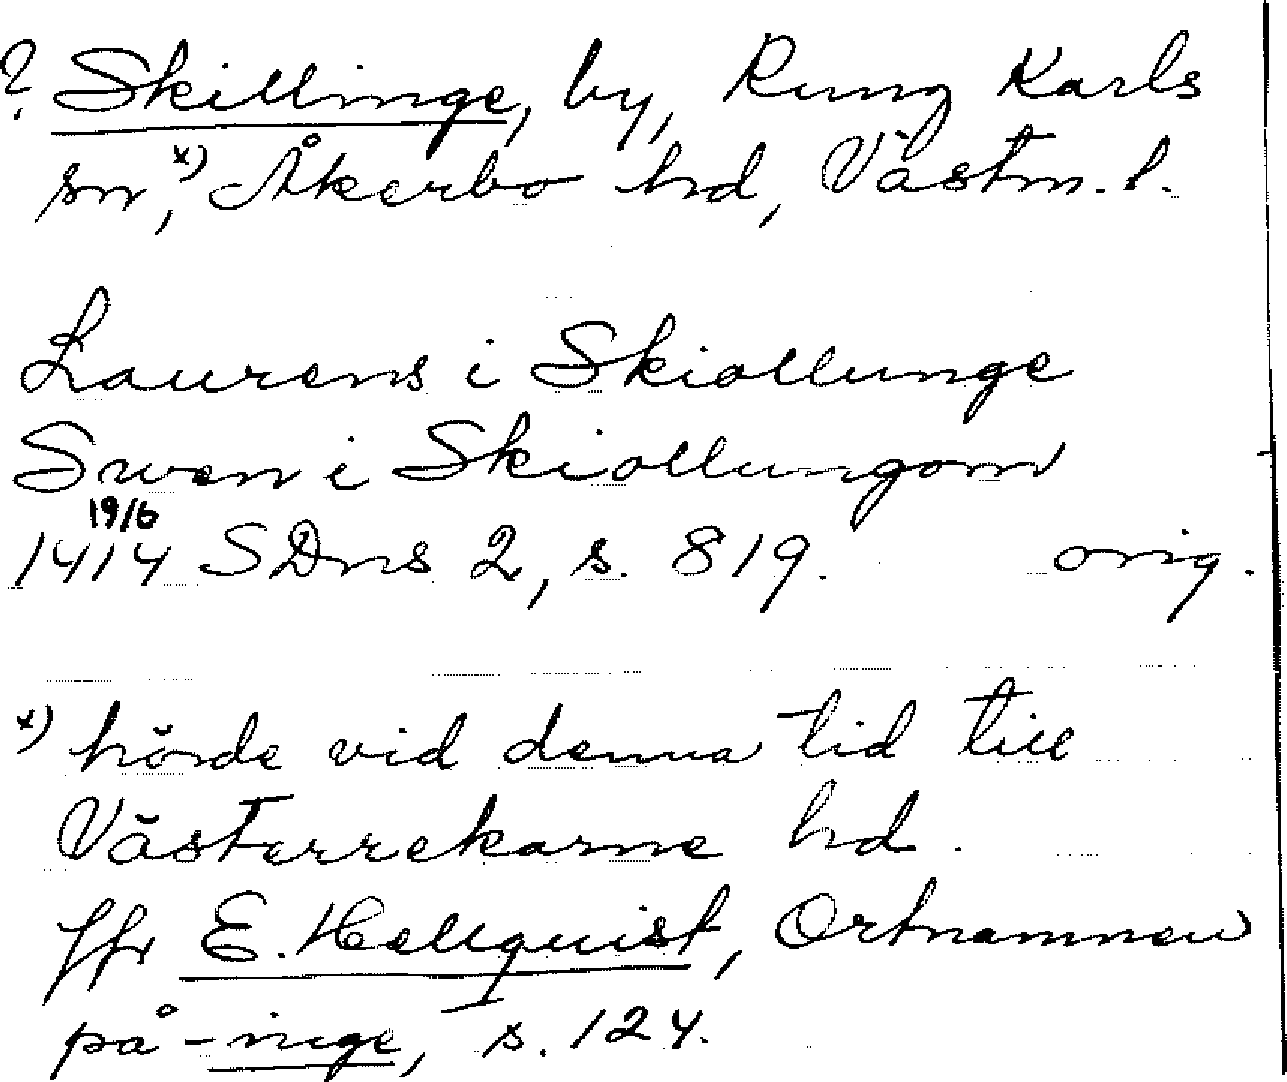 ? Skillinge, by, Kung Karls
sn,x) Åkerbo hd, Västm. l.
Laurens i Skiollunge
Swen i Skiollungom
19/6
1414 SDns 2, s. 819. orig.
x) hörde vid denna tid till
Västerrekarne hd.
Jfr E. Hellquist, Ortnamnen
på -inge, s. 124.